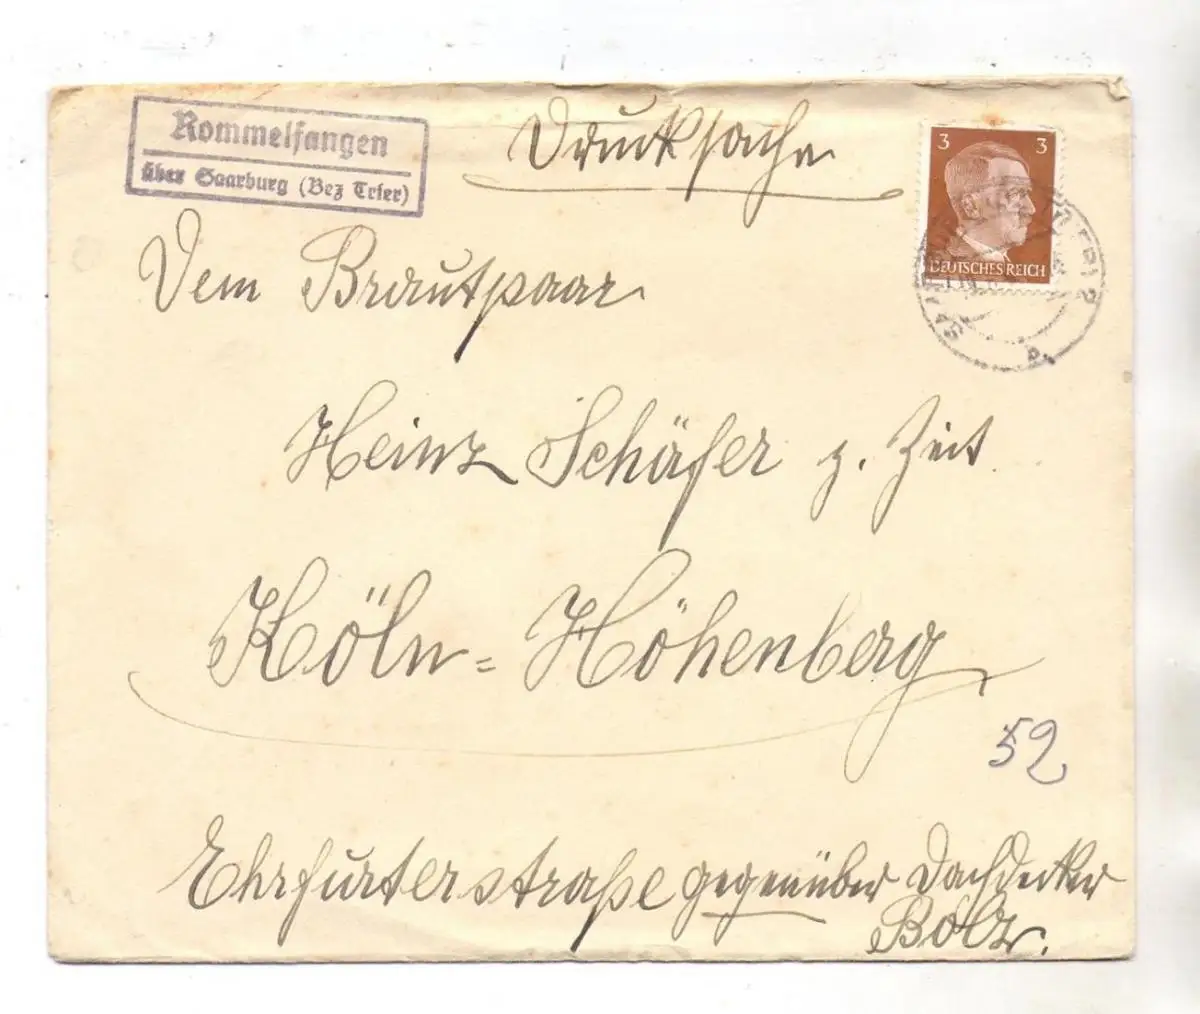 Rommelfangen
über Saarburg (Bez Trier)
Drucksache
3 3
DEUTSCHES REICH
Dem Brautpaar
Heinz Schäfer z. Zeit
Köln=Höhenberg
52
Ehrfurterstraße gegenüber Dachdecker
Bölz.